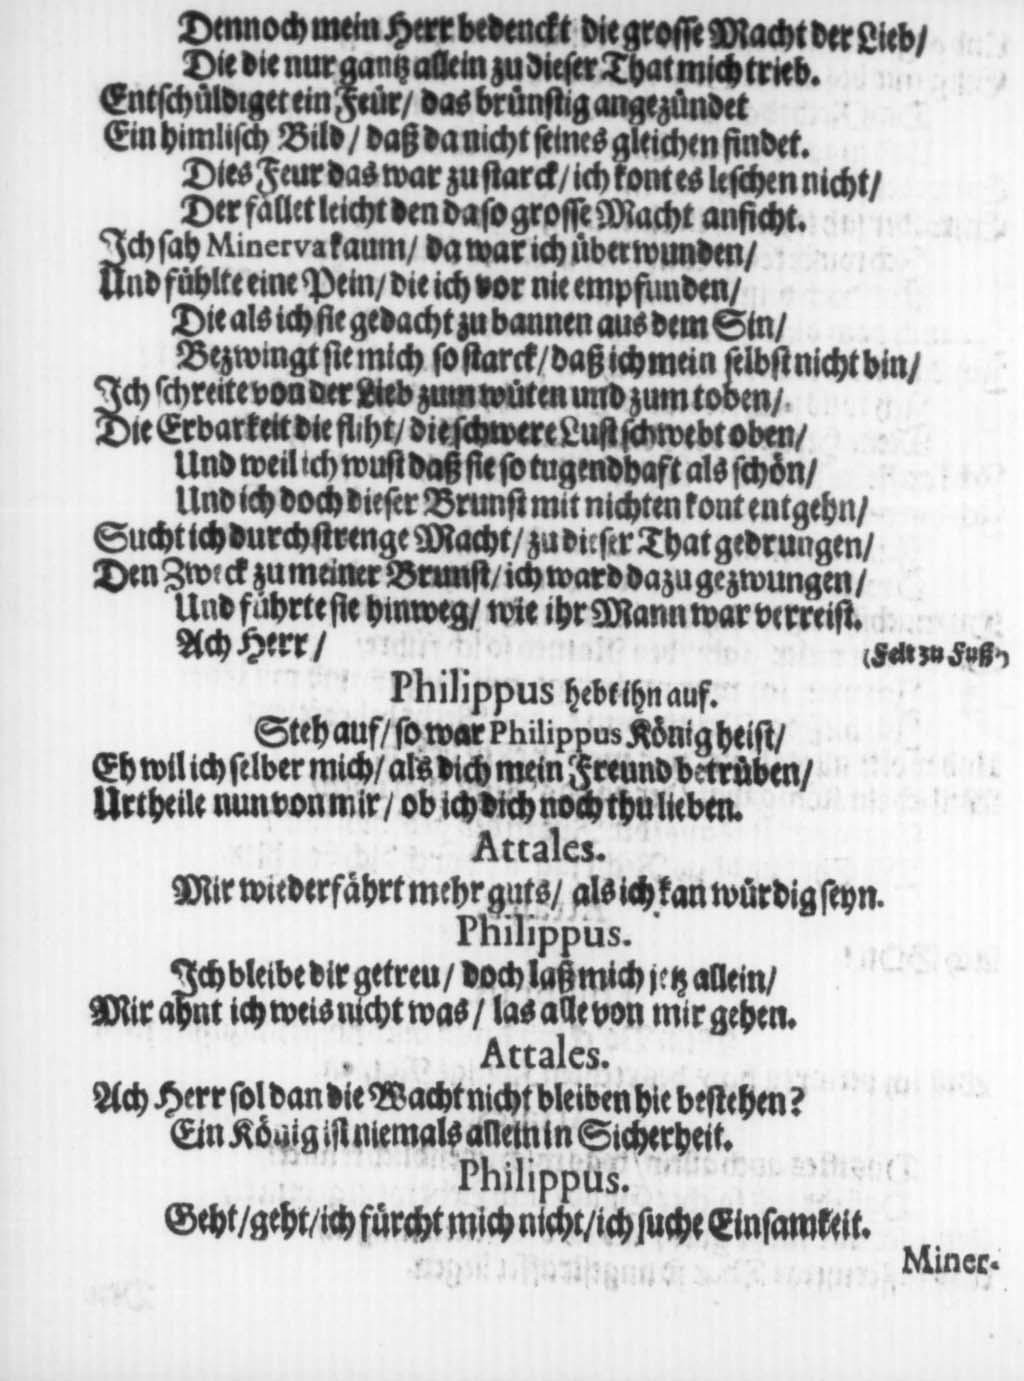 Dennoch mein Herr bedenckt die grosse Macht der Lieb/
Die die nur gantz allein zu dieser That mich trieb.
Entschüldiget ein Feür/ das brünstig angezündet
Ein himlisch Bild/ daß da nicht seines gleichen findet.
Dies Feur das war zu starck/ ich kont es leschen nicht/
Der fället leicht den da so grosse Macht anficht.
Ich sah Minerva kaum/ da war ich überwunden/
Und fühlte eine Pein/ die ich vor nie empfunden/
Die als ich sie gedacht zu bannen aus dem Sin/
Bezwingt sie mich so starck/ daß ich mein selbst nicht bin/
Ich schreite von der Lieb zum wüten und zum toben/
Die Erbarkeit die fliht/ die schwere Lust schwebt oben/
Und weil ich wust daß sie so tugendhaft als schön/
Und ich doch dieser Brunst mit nichten kont entgehn/
Sucht ich durch strenge Macht/ zu dieser That gedrungen/
Den Zweck zu meiner Brunst/ ich ward dazu gezwungen/
Und führte sie hinweg/ wie ihr Mann war verreist.
Ach Herr/ (Felt zu Fuß.)
Philippus hebt ihn auf.
Steh auf/ so war Philippus König heist/
Eh wil ich selber mich/ als dich mein Freund betrüben/
Urtheile nun von mir/ ob ich dich noch thu lieben.
Attales.
Mir wiederfährt mehr guts/ als ich kan würdig seyn.
Philippus.
Ich bleibe dir getreu/ doch laß mich jetz allein/
Mir ahnt ich weis nicht was/ las alle von mir gehen.
Attales.
Ach Herr sol dan die Wacht nicht bleiben hie bestehen?
Ein König ist niemals allein in Sicherheit.
Philippus.
Geht/ geht/ ich fürcht mich nicht/ ich suche Einsamkeit.
Miner-